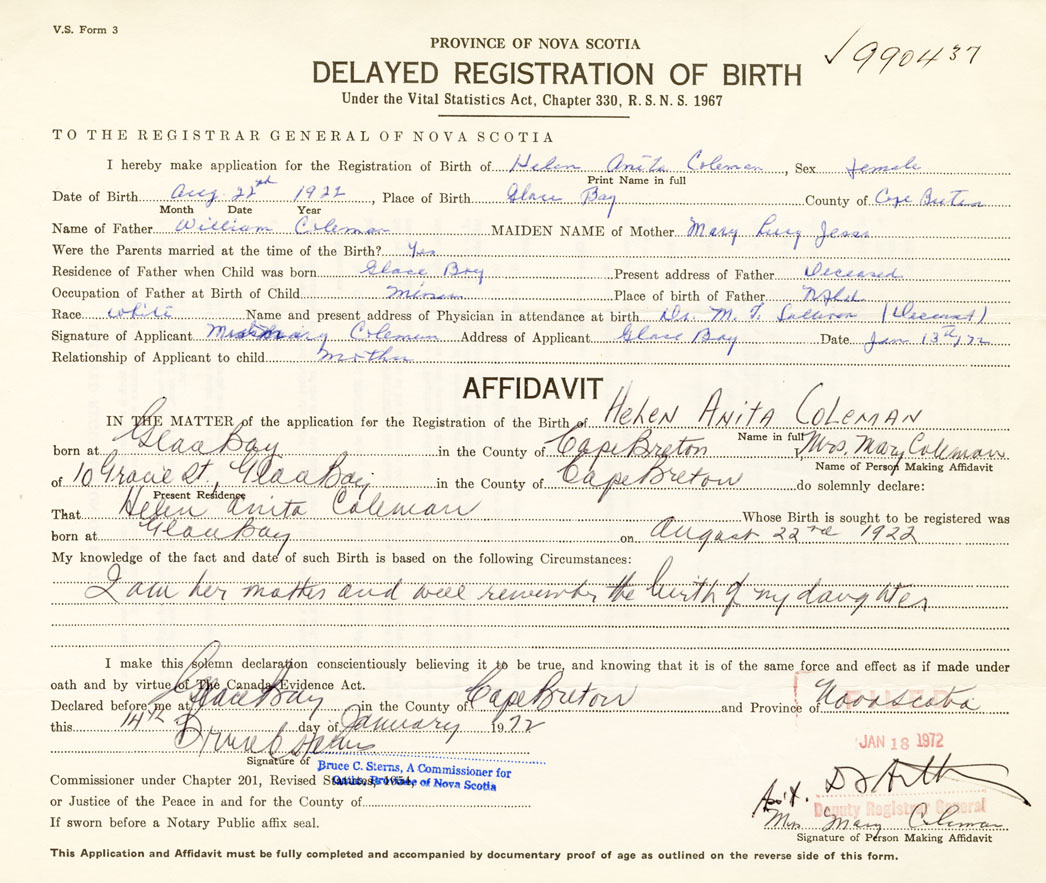 V.S. Form 3
PROVINCE OF NOVA SCOTIA
990437
DELAYED REGISTRATION OF BIRTH
Under the Vital Statistics Act, Chapter 330, R. S. N. S. 1967
TO THE REGISTRAR GENERAL OF NOVA SCOTIA
I hereby make application for the Registration of Birth of Helen Anita Coleman, Sex female
Print Name in full
Date of Birth Aug. 22nd 1922, Place of Birth Glace Bay County of Cape Breton
Month Date Year
Name of Father William Coleman MAIDEN NAME of Mother Mary Lucy
Were the Parents married at the time of the Birth? Yes
Residence of Father when Child was born Glace Bay Present address of Father Deceased
Occupation of Father at Birth of Child Miner Place of birth of Father Nfld
Race white Name and present address of Physician in attendance at birth Dr. M. T.
Signature of Applicant Mary Coleman Address of Applicant Glace Bay Date Jan 13th/72
Relationship of Applicant to child Mother
AFFIDAVIT
IN THE MATTER of the application for the Registration of the Birth of HELEN ANITA COLEMAN
Name in full
born at Glace Bay in the County of Cape Breton I, Mrs. Mary Coleman
Name of Person Making Affidavit
of 10 St., Glace Bay in the County of Cape Breton do solemnly declare:
Present Residence
That Helen Anita Coleman Whose Birth is sought to be registered was
born at Glace Bay on August 22nd 1922
My knowledge of the fact and date of such Birth is based on the following Circumstances:
I am her mother and well remember the birth of my daughter
I make this solemn declaration conscientiously believing it to be true, and knowing that it is of the same force and effect as if made under
oath and by virtue of The Canada Evidence Act.
Declared before me at Glace Bay in the County of Cape Breton and Province of Nova Scotia
this 14th day of January 1972
Bruce C Sterns
JAN 18 1972
Signature of
Bruce C. Sterns, A Commissioner for
Commissioner under Chapter 201, Revised Statutes, 1954,
Oaths, Province of Nova Scotia
or Justice of the Peace in and for the County of
Deputy Registrar General
If sworn before a Notary Public affix seal.
Mrs Mary Coleman
Signature of Person Making Affidavit
This Application and Affidavit must be fully completed and accompanied by documentary proof of age as outlined on the reverse side of this form.